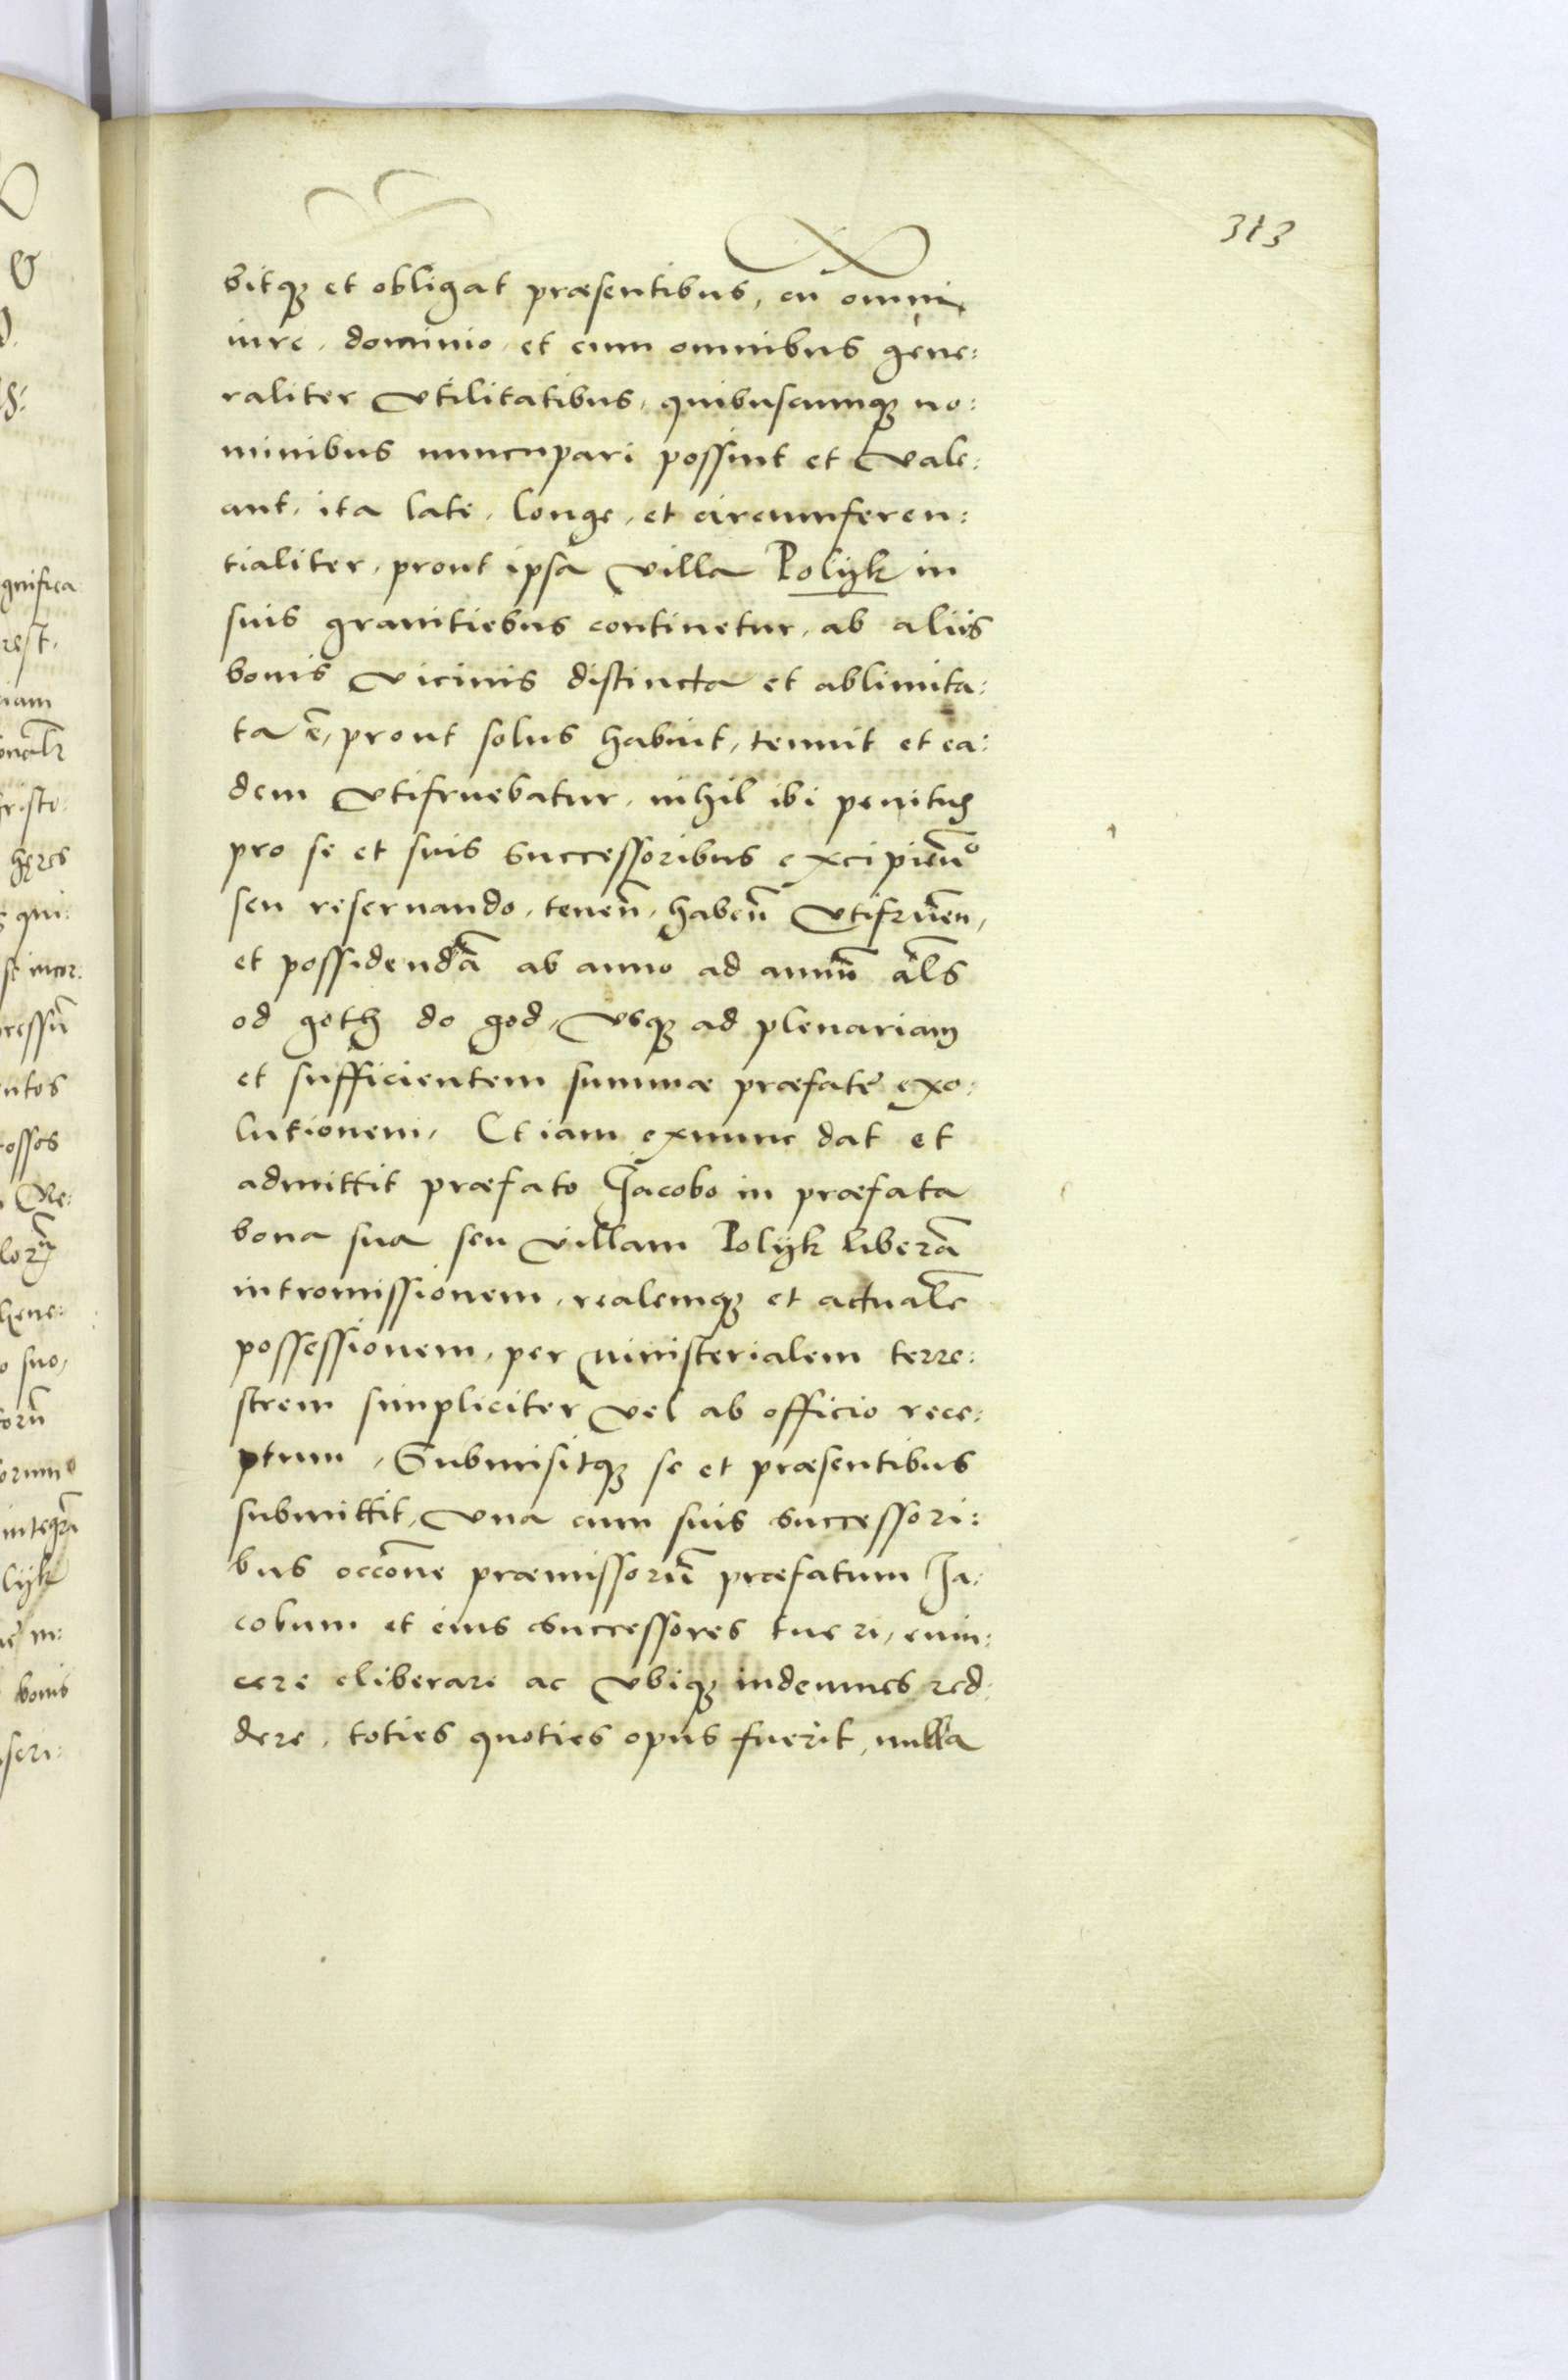 313
bitqꝫ et obligat præsentibus, cū omni
iure, dominio, et cum omnibus gene:
raliter vtilitatibus, quibuscumqꝫ no:
minibus nuncupari possint et vale:
ant, ita late, longe, et circumferen:
tialiter, prout ipsa villa Polijk in
suis granitiebus continetur, ab aliis
bonis vicinis distincta et ablimita:
ta ē, prout solus habuit, tenuit et ea:
dem vtifruebatur, nihil ibi penitus
pro se et suis successoribus excipieñº
seu reseruando, teneñ, habeñ vtifrueñ,
et possidendā ab anno ad annū al̃s
od goth do god, vsqꝫ ad plenariam
et sufficientem summæ præfatę exo:
lutionem, Etiam exnunc dat et
admittit præfato Jacobo in præfata
bona sua seu villam Polijk liberā
intromissionem, realemqꝫ et actualē
possessionem, per ministerialem terre:
strem simpliciter vel ab officio rece:
ptum, Submisitqꝫ se et præsentibus
submittit, vna cum suis successori:
bus occōne præmissorū præfatum Ja:
cobum et eius successores tueri, euin:
cere eliberare ac vbiqꝫ indemnes red:
dere, toties quoties opus fuerit, nulla